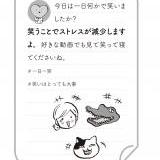 今日は一日何かで笑いま
したか？
笑うことでストレスが減少します
よ。好きな動画でも見て笑って寝
てくださいね。
#一日一笑
#笑いはとっても大事